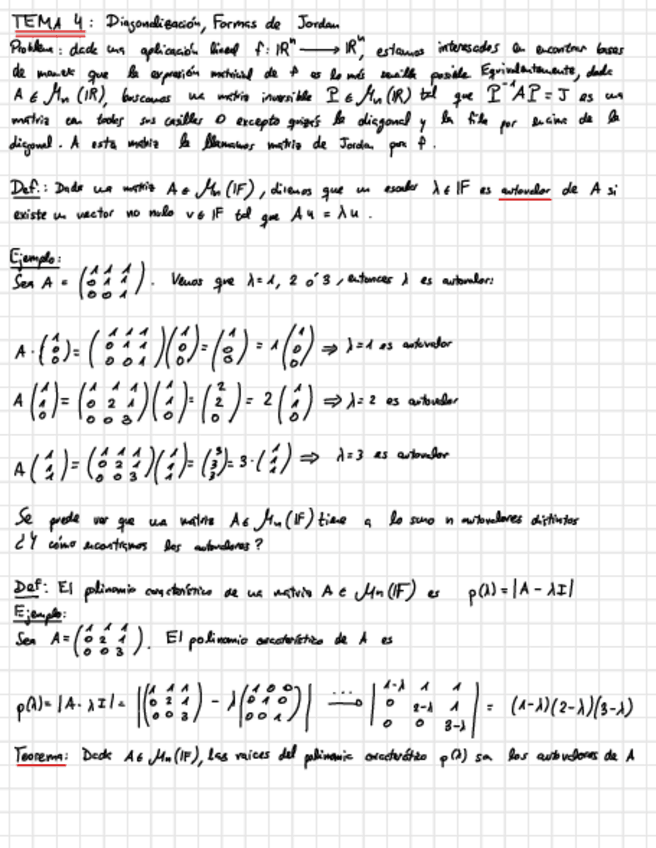 TEMA 4: Diagonalización, Formas de Jordan
Problema: dada una aplicación lineal f: ℝⁿ ⟶ ℝⁿ, estamos interesados en encontrar bases
de manera que la expresión matricial de f es lo más sencilla posible Equivalentemente, dada
A ∈ Mₙ(ℝ), buscamos una matriz inversible P ∈ Mₙ(ℝ) tal que P⁻¹AP = J es una
matriz con todas sus casillas 0 excepto quizás la diagonal y la fila por encima de la
diagonal. A esta matriz la llamamos matriz de Jordan por f.
Def.: Dada una matriz A ∈ Mₙ(IF), diremos que un escalar λ ∈ IF es autovalor de A si
existe un vector no nulo v ∈ IF tal que Au = λu.
Ejemplo:
Sea A = (1 1 1; 0 1 1; 0 0 1). Vemos que λ = 1, 2 ó 3, entonces λ es autovalor:
A · (1; 0; 0) = (1 1 1; 0 1 1; 0 0 1)(1; 0; 0) = (1; 0; 0) = 1(1; 0; 0) ⇒ λ = 1 es autovalor
A(1; 1; 0) = (1 1 1; 0 2 1; 0 0 3)(1; 1; 0) = (2; 2; 0) = 2(1; 1; 0) ⇒ λ = 2 es autovalor
A(1; 1; 1) = (1 1 1; 0 2 1; 0 0 3)(1; 1; 1) = (3; 3; 3) = 3·(1; 1; 1) ⇒ λ = 3 es autovalor
Se puede ver que una matriz A ∈ Mₙ(IF) tiene a lo sumo n autovalores distintos
¿Y cómo encontramos los autovalores?
Def: El polinomio característico de una matriz A ∈ Mₙ(IF) es p(λ) = |A - λI|
Ejemplo:
Sea A = (1 1 1; 0 2 1; 0 0 3). El polinomio característico de A es
p(λ) = |A - λI| = |(1 1 1; 0 2 1; 0 0 3) - λ(1 0 0; 0 1 0; 0 0 1)| ⋯⟶ |1-λ 1 1; 0 2-λ 1; 0 0 3-λ| = (1-λ)(2-λ)(3-λ)
Teorema: Dada A ∈ Mₙ(IF), las raíces del polinomio característico p(λ) son los autovalores de A